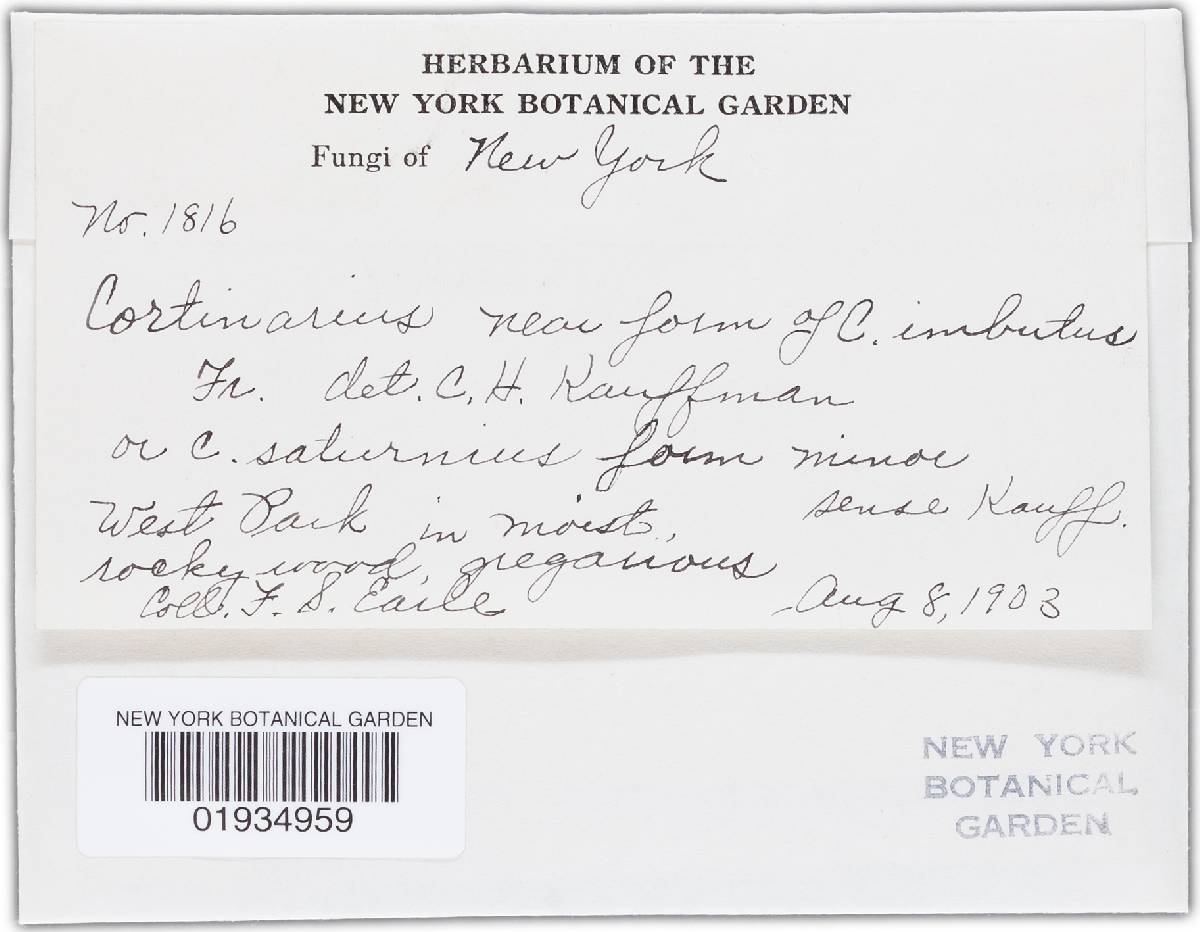 HERBARIUM OF THE
NEW YORK BOTANICAL GARDEN
Fungi of New York
No. 1816
Cortinarius near form of C. imbutus
Fr. det. C. H. Kauffman
or C. saturnius form minor
sense Kauff.
West Park in moist,
rocky wood, gregarious
Coll. F. S. Earle Aug 8, 1903
NEW YORK BOTANICAL GARDEN
01934959
NEW YORK
BOTANICAL
GARDEN